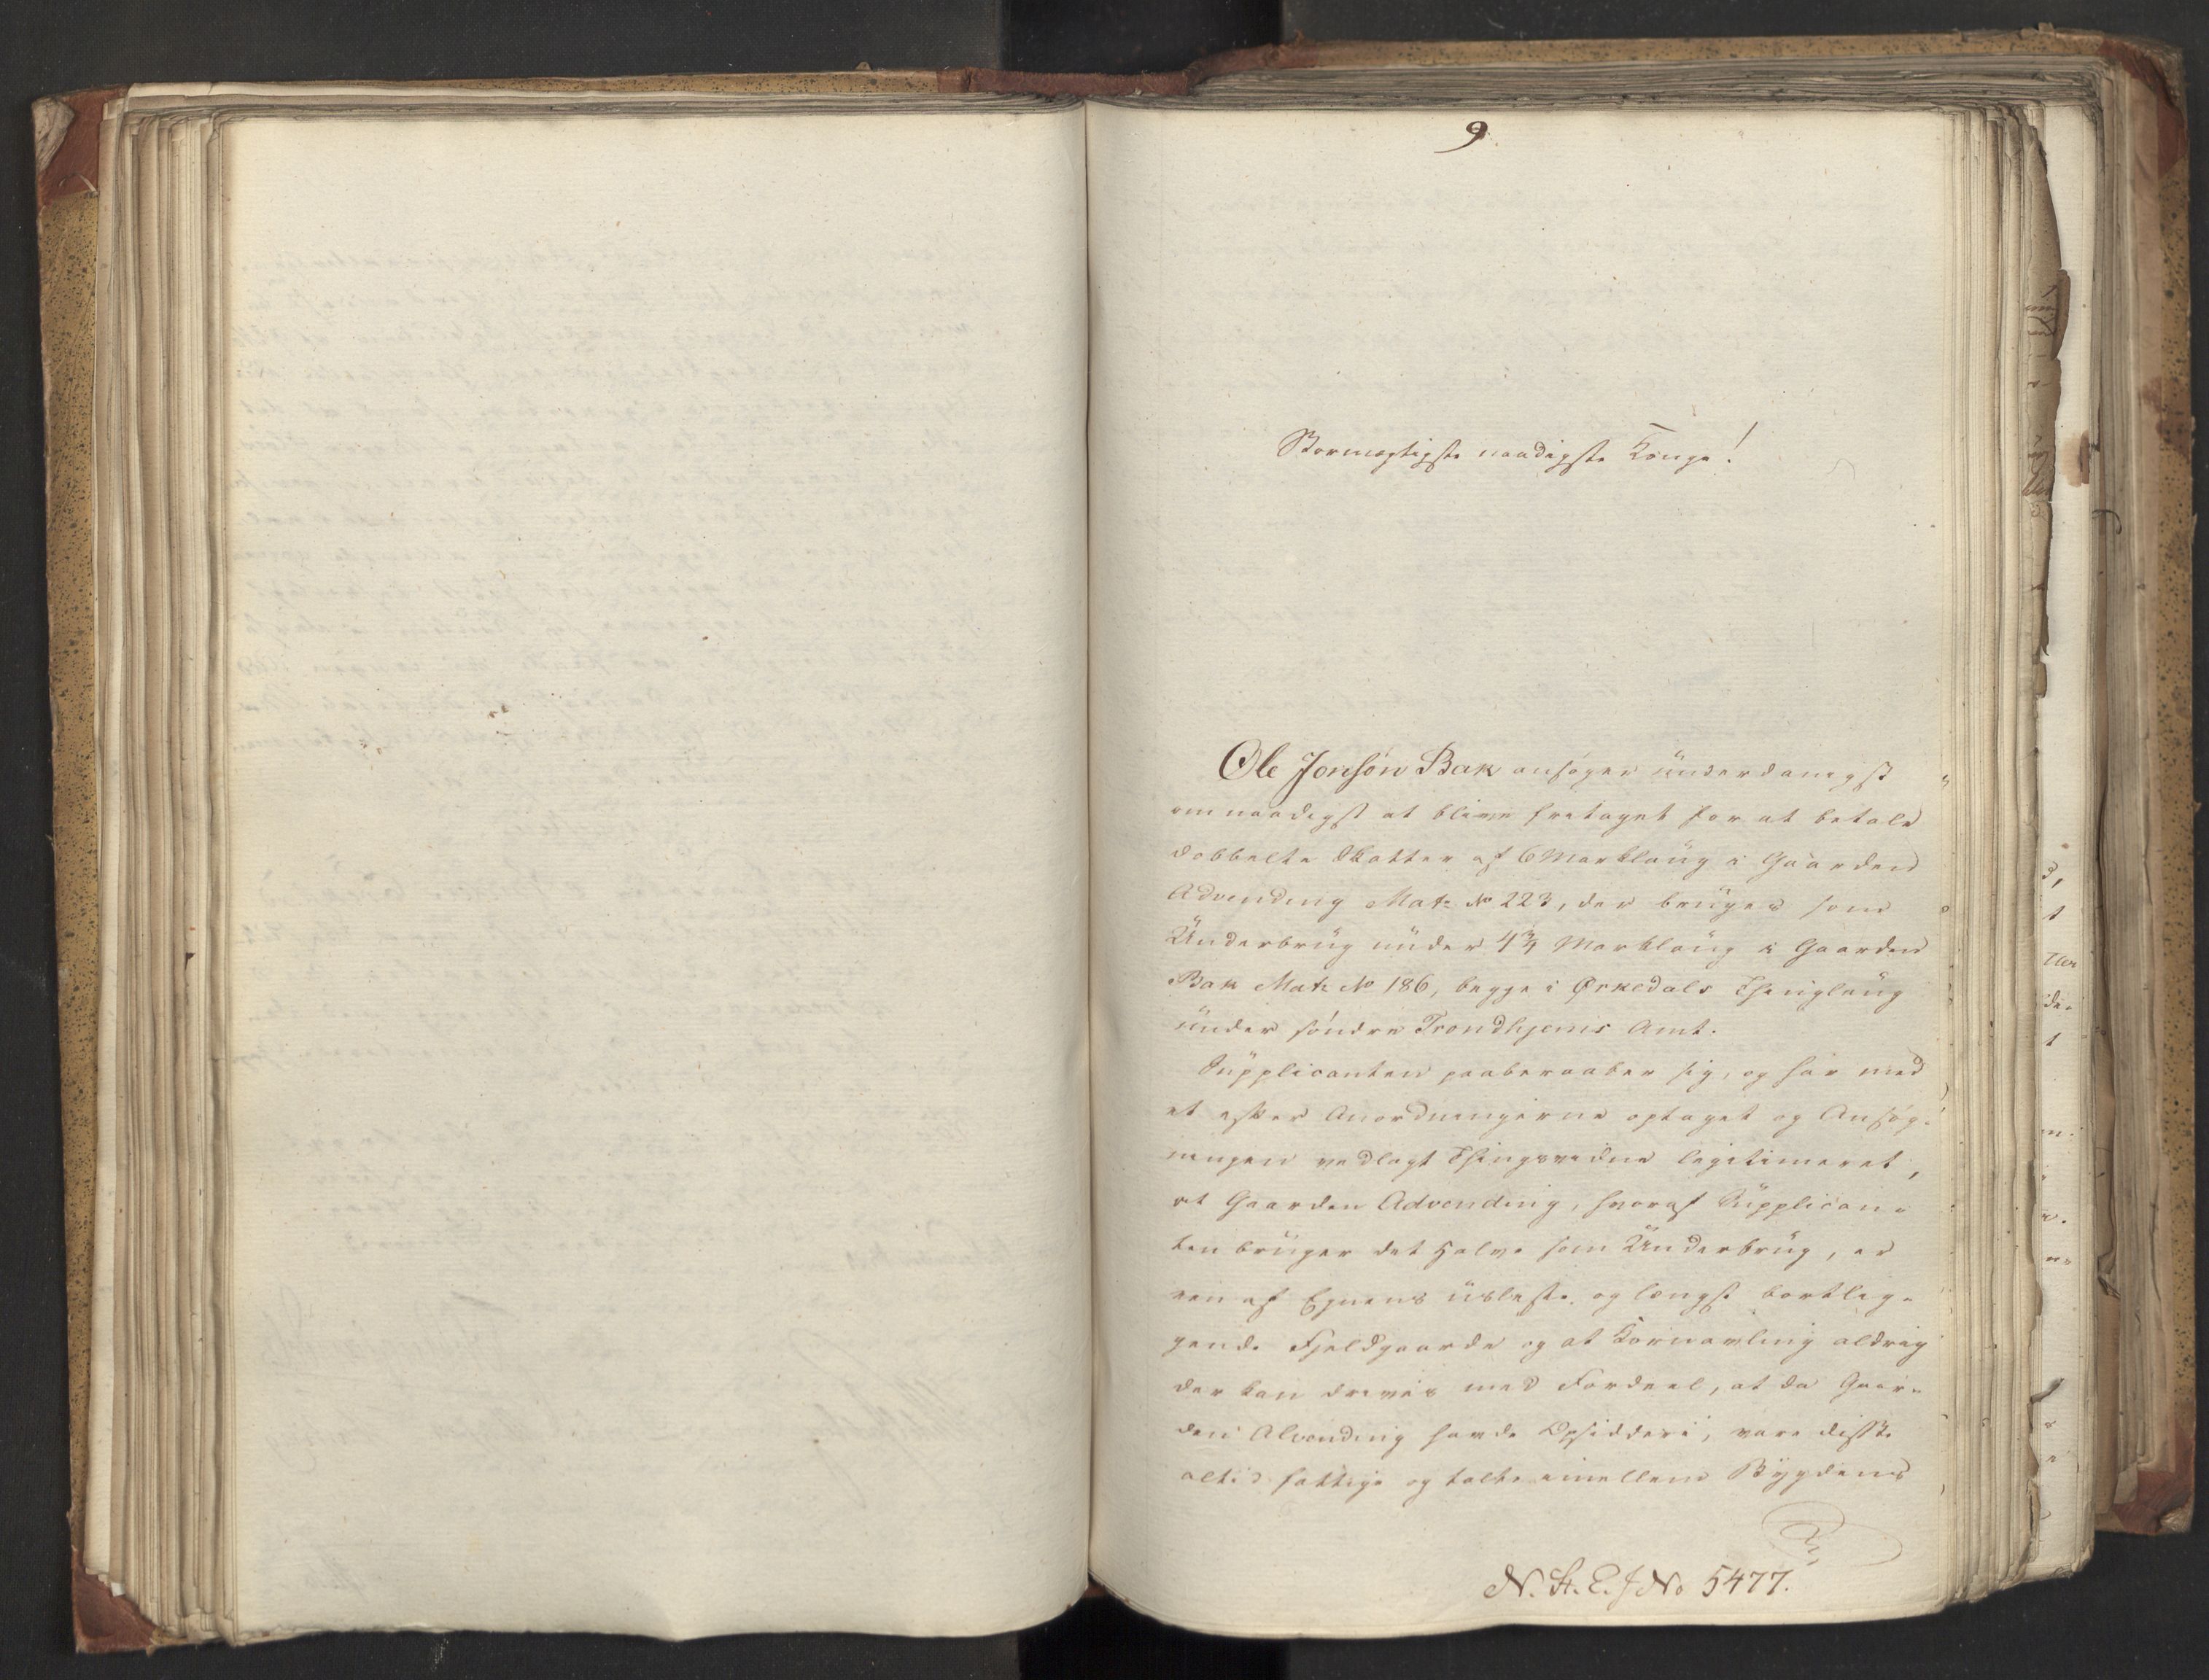 9.
Stormægtigste naadigste Konge!
Ole Jonsøn Bak ansøger underdanigst
om naadigst at blive fritaget for at betale
dobbelte Skatter af 6 Marklaug i Gaarden
Advending Mat: No 223, der bruges som
Underbrug under 4 3/4 Marklaug i Gaarden
Bak Mat: No 186, begge i Ørkedals Thinglaug
under søndre Trondhjems Amt.
Supplicanten paaberaaber sig, og har med
et efter Anordningerne optaget og Ansøg-
ningen vedlagt Thingsvidne legitimeret,
at Gaarden Advending, hvoraf Supplican-
ten bruger det Halve som Underbrug, er
een af Egnens usleste og længst bortlig-
gende Fjeldgaarde og at Kornavling aldrig
der kan drives med Fordeel, at da Gaar-
den Alvending havde Opsiddere, vare disse
altid fattige og talte imellem Bygdens
N. St. E. J No 5477.